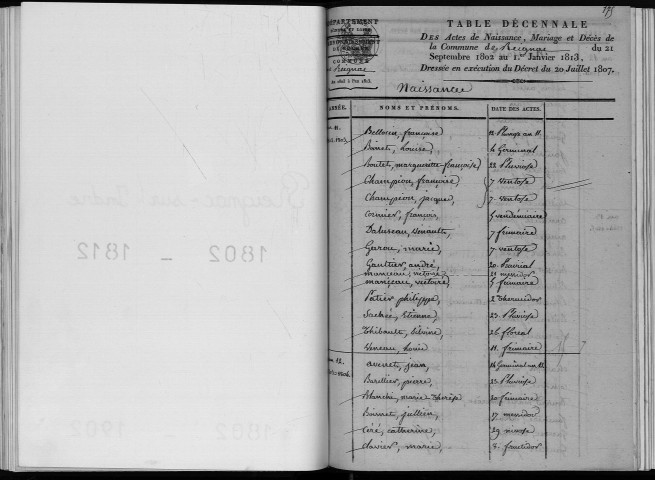 175
DÉPARTEMENT
COMMUNE
Reignac
TABLE DÉCENNALE
DES Actes de Naissance, Mariage et Décès de
la Commune de Reignac du 21
Septembre 1802 au 1.er Janvier 1813.
Dressée en exécution du Décret du 20 Juillet 1807.
Naissances
ANNÉE. NOMS ET PRÉNOMS. DATE DES ACTES.
an 11. françoise 12 Pluviose an 11.
Louise, 4 Germinal
Boutet, marguerite-françoise 22 Pluviose
Champion, françoise 7 ventose
Champion, jacque, 7 ventose
Cormier, françois, 5 vendémiaire
7 frimaire
Garou, marie, 7 ventose
Gaultier, andré, 20. Prairial
manceau, victoire 21 messidor
manceau, victoire, 5 frimaire
Patier philippe, 2 thermidor
Sachée, Etienne, 23. Pluviose
Thibault, Silvine, 26 floreal
Louise 11. frimaire
an 12. avenet, jean, 14 Germinal an 12.
Barellier, pierre, 23. Pluviose
Blanché, marie-therèse 20 frimaire
Bonnet, jullien, 17 messidor
Céré, catherine, 29 nivose
Clavier, marie, 8 fructidor
Reignac-sur-Indre
1802 - 1812
1802 - 1902